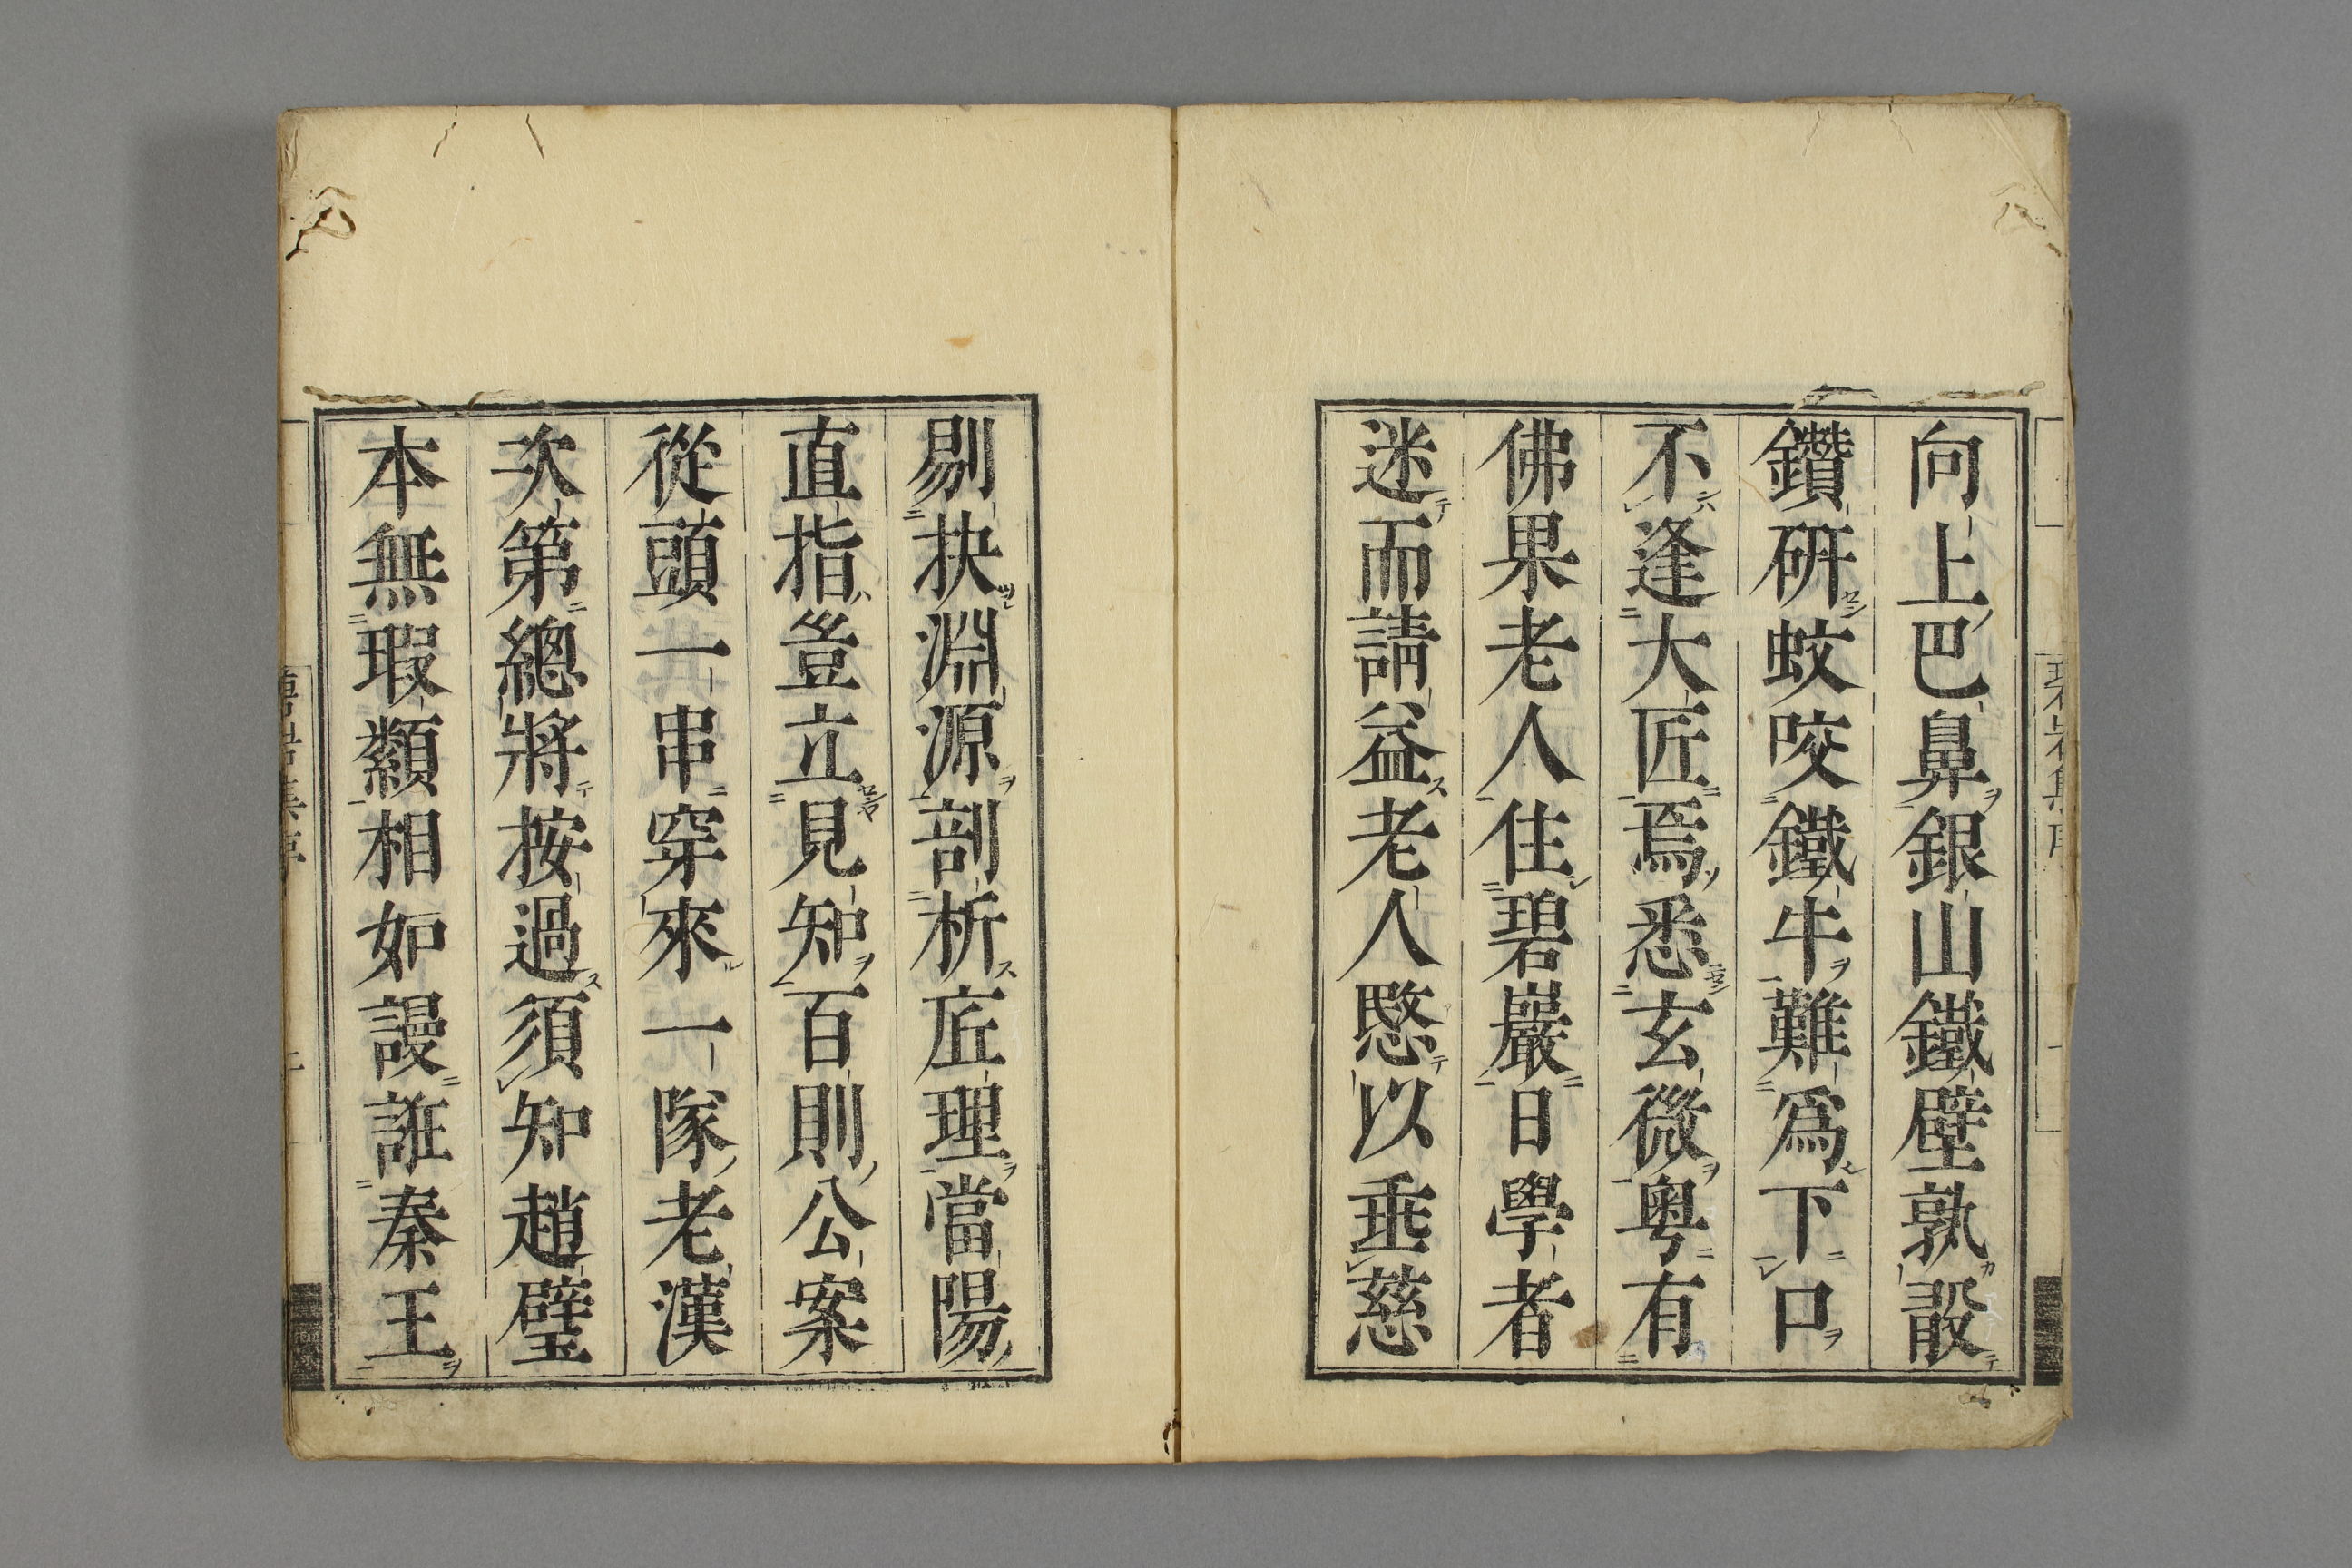 向上巴鼻銀山鐵壁孰敢
鑽研蚊咬鐵牛難爲下口
不逢大匠焉悉玄微粤有
佛果老人住碧巖日學者
迷而請益老人愍以垂慈
剔抉淵源剖析底理當陽
直指豈立見知百則公案
從頭一串穿來一隊老漢
次第總將按過須知趙璧
本無瑕纇相如謾誑秦王